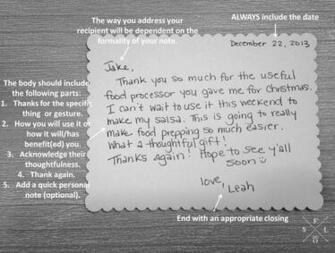 The way you address your
recipient will be dependent on the
formality of your note.
ALWAYS include the date
December 22, 2013
Jake,
Thank you so much for the useful
food processor you gave me for Christmas.
I can't wait to use it this weekend to
make my salsa. This is going to really
make food prepping so much easier.
What a thoughtful gift!
Thanks again! Hope to see y'all
soon
love,
Leah
The body should include
the following parts:
1. Thanks for the specific
thing or gesture.
2. How you will use it or
how it will/has
benefit(ed) you.
3. Acknowledge their
thoughtfulness.
4. Thank again.
5. Add a quick personal
note (optional).
End with an appropriate closing